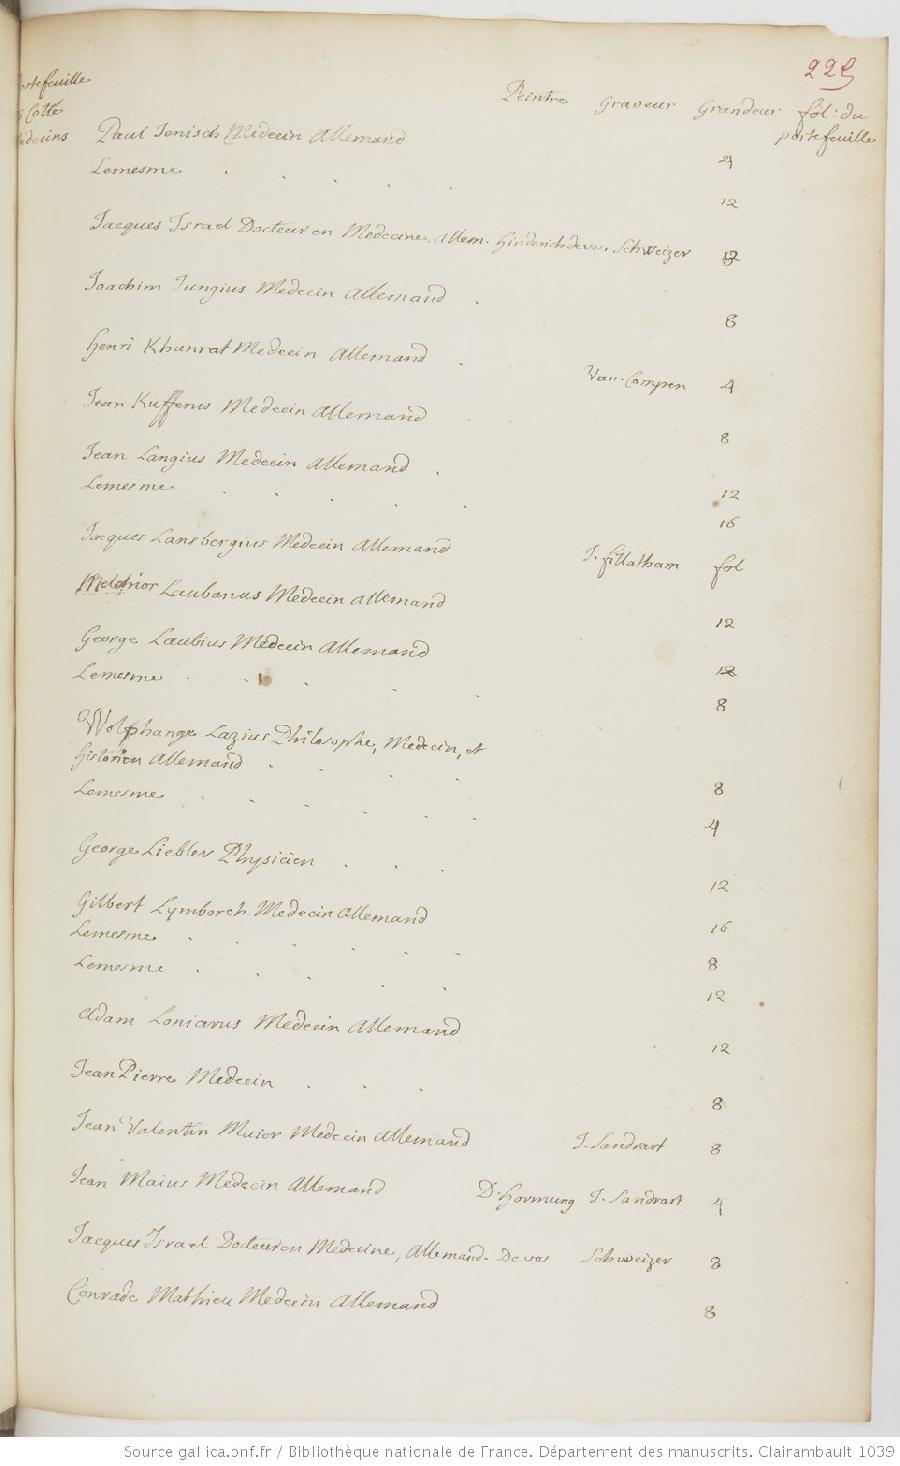 225
portefeuille
Cotté
Medecins
Peintre Graveur Grandeur fol: du portefeuille
Paul Jenisch Medecin Allemand 4
Lemesme 12
Jacques Israel Docteur en Medecine. Allem. Hinderichdevos. Schweizer
Joachim Jungius Medecin Allemand 8
Henri Khunrat Medecin Allemand Van-Compen 4
Jean Kufferus Medecin Allemand 8
Jean Langius Medecin Allemand 12
Lemesme 16
Jacques Lansbergius Medecin Allemand J. fillatham fol
Melchior Laubanus Medecin Allemand 12
George Laubius Medecin Allemand 12
Lemesme 8
Wolphange Lazius Philosophe, Medecin, et
historien Allemand 8
Lemesme 4
George Liebler Physicien 12
Gilbert Lymborch Medecin Allemand 16
Lemesme 8
Lemesme 12
Adam Lonicerus Medecin Allemand 12
Jean Pierre Medecin 8
Jean Valentin Muier Medecin Allemand J. Sandrart 8
Jean Maius Medecin Allemand D. Hormung J. Sandrart 4
Jacques Israel Docteur en Medecine, Allemand. Devos Schweizer 8
Conrade Mathieu Medecin Allemand 8
Source gallica.bnf.fr / Bibliothèque nationale de France. Département des manuscrits. Clairambault 1039